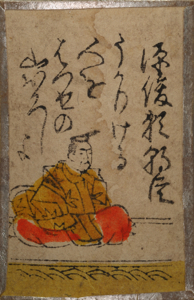 源俊頼朝臣
うかりける
人を
はつせの
山おろしよ